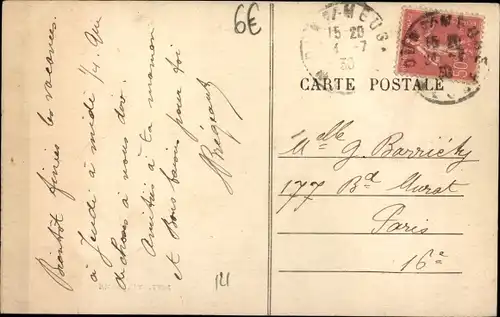 Bientôt finies les vacances.
à Jeudi à midi 1/4. Que
de choses à vous dire.
Amitiés à ta maman
et Bons baisers pour toi
6€
121
CARTE POSTALE
MEUSE
15 20
1 - 7
30
50
Melle G. Barriéty
177 Bd Murat
Paris
16e